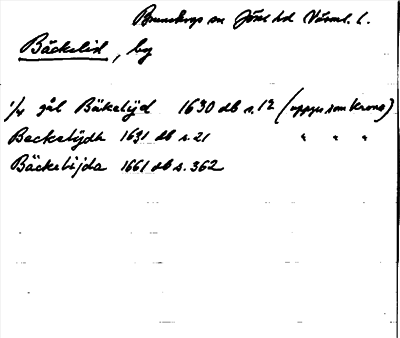 Brunskogs sn Jösse hd Värml. l.
Bäckelid, by
1/4 gål Bäkelijd 1630 db s. 12 (uppges som krono)
Beckelijdh 1631 db s. 21 " " "
Bäckelijda 1661 db s. 362